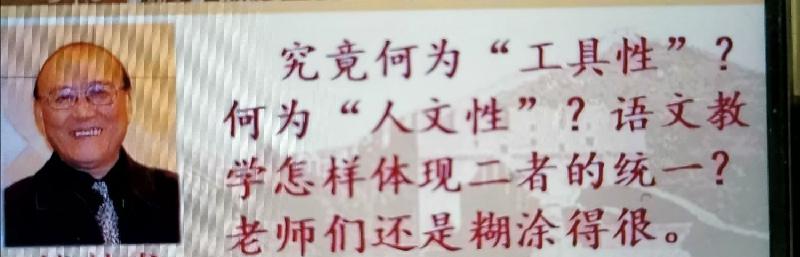 究竟何为“工具性”？
何为“人文性”？语文教
学怎样体现二者的统一？
老师们还是糊涂得很。